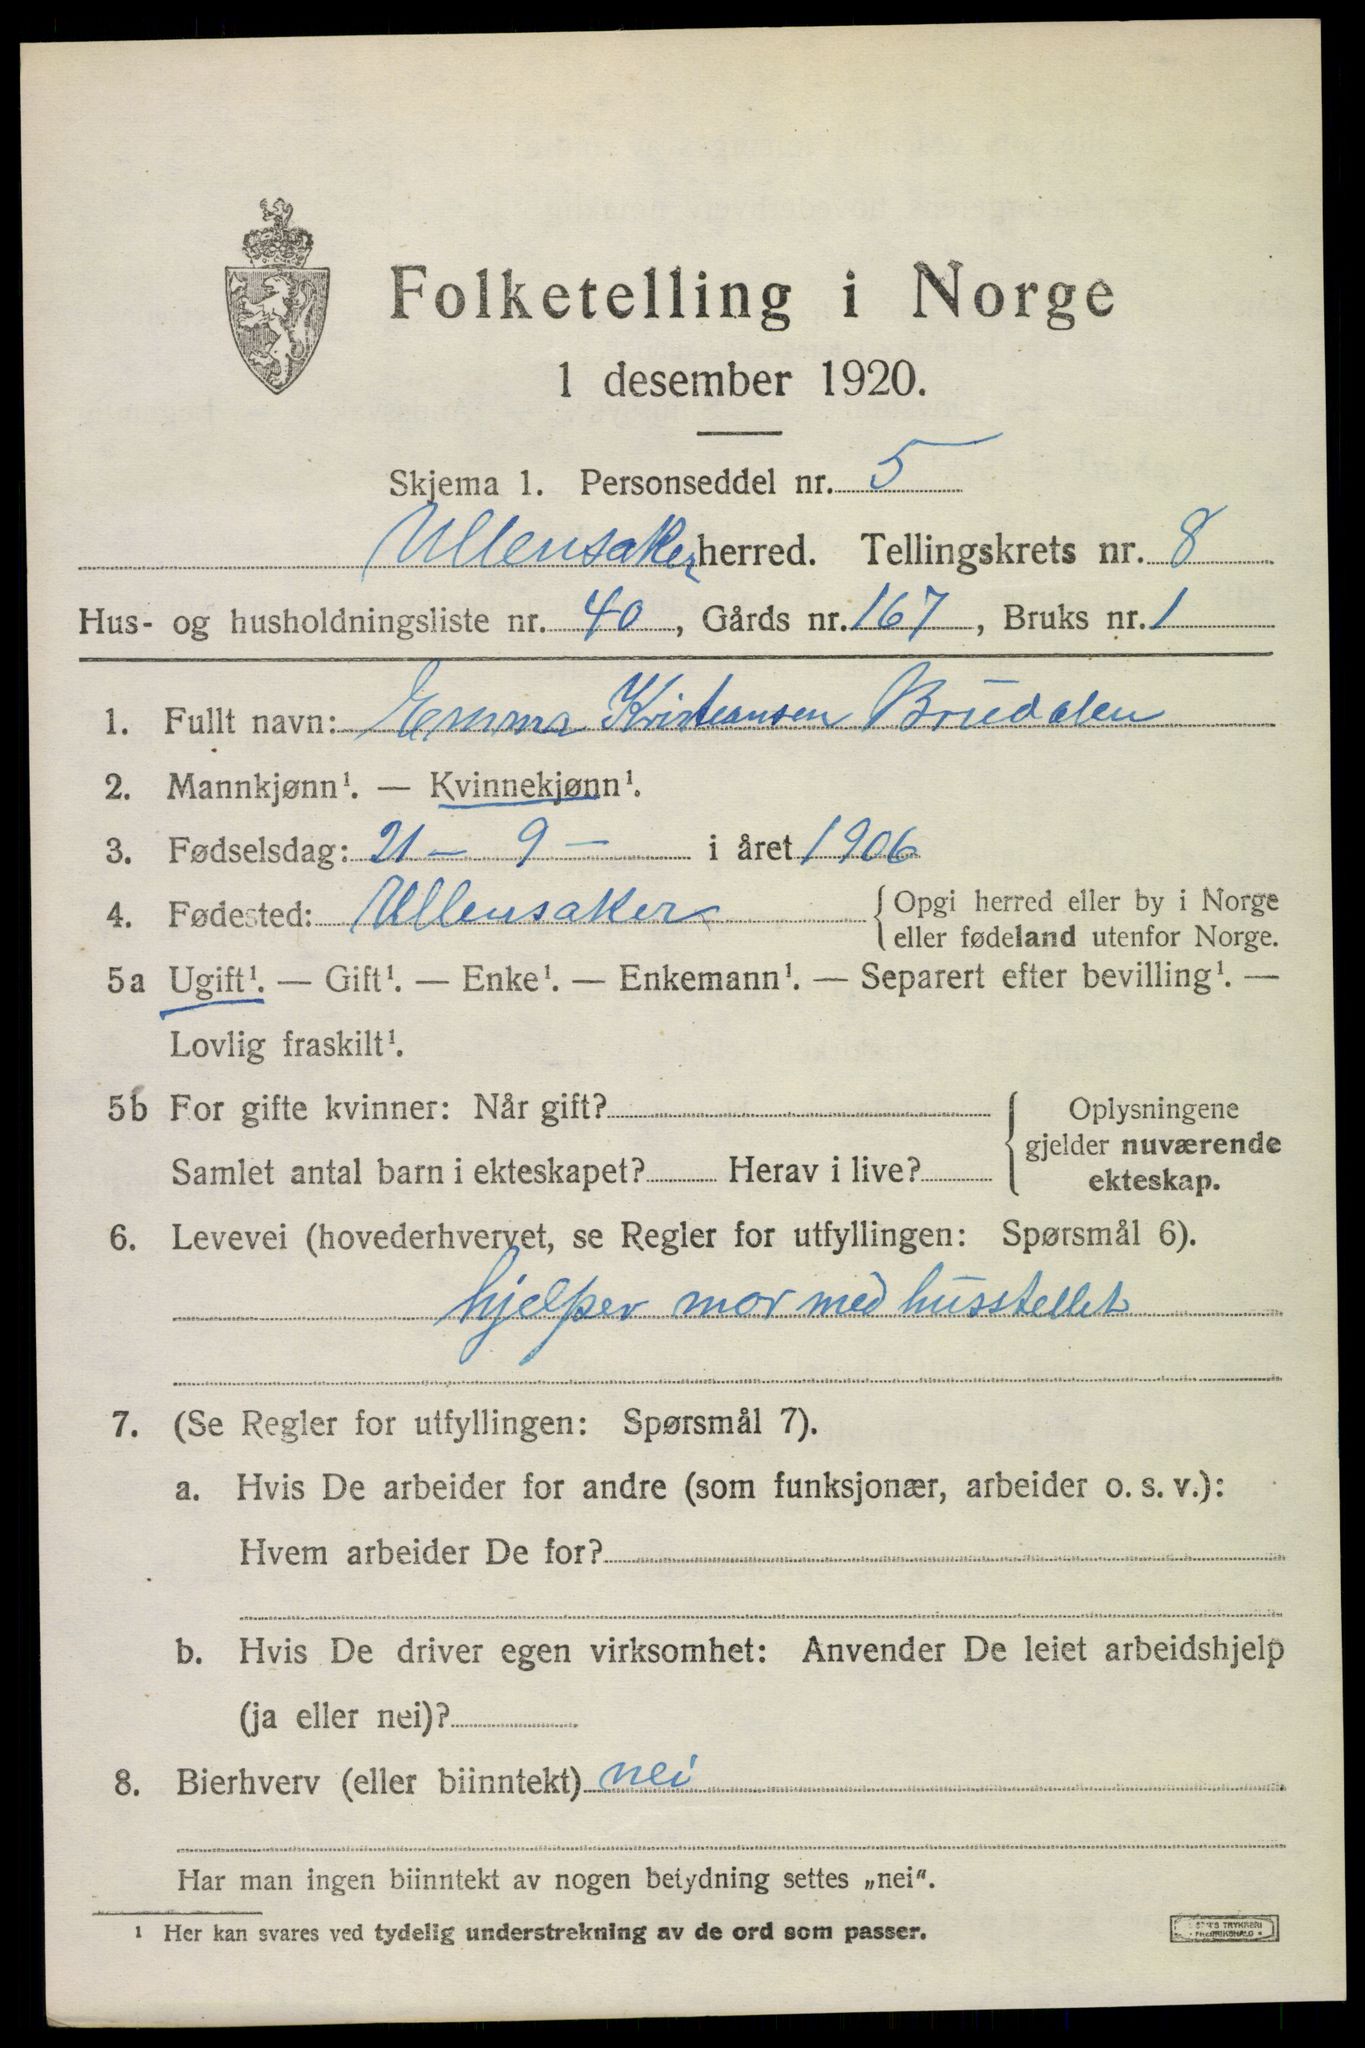 Folketelling i Norge
1 desember 1920.
Skjema 1. Personseddel nr. 5
Ullensaker herred. Tellingskrets nr. 8
Hus- og husholdningsliste nr. 40, Gårds nr. 167, Bruks nr. 1
1. Fullt navn: Emma Kristiansen Brudalen
2. Mannkjønn¹. — Kvinnekjønn¹.
3. Fødselsdag: 21 — 9 — i året 1906
4. Fødested: Ullensaker { Opgi herred eller by i Norge
eller fødeland utenfor Norge.
5a Ugift¹. — Gift¹. — Enke¹. — Enkemann¹. — Separert efter bevilling¹. —
Lovlig fraskilt¹.
5b For gifte kvinner: Når gift? { Oplysningene
gjelder nuværende
Samlet antal barn i ekteskapet? Herav i live? ekteskap.
6. Levevei (hovederhvervet, se Regler for utfyllingen: Spørsmål 6).
hjelper mor med husstellet
7. (Se Regler for utfyllingen: Spørsmål 7).
a. Hvis De arbeider for andre (som funksjonær, arbeider o. s. v.):
Hvem arbeider De for?
b. Hvis De driver egen virksomhet: Anvender De leiet arbeidshjelp
(ja eller nei)?
8. Bierhverv (eller biinntekt) nei
Har man ingen biinntekt av nogen betydning settes „nei“.
¹ Her kan svares ved tydelig understrekning av de ord som passer.
TRYKKERI
FREDRIKSHALD